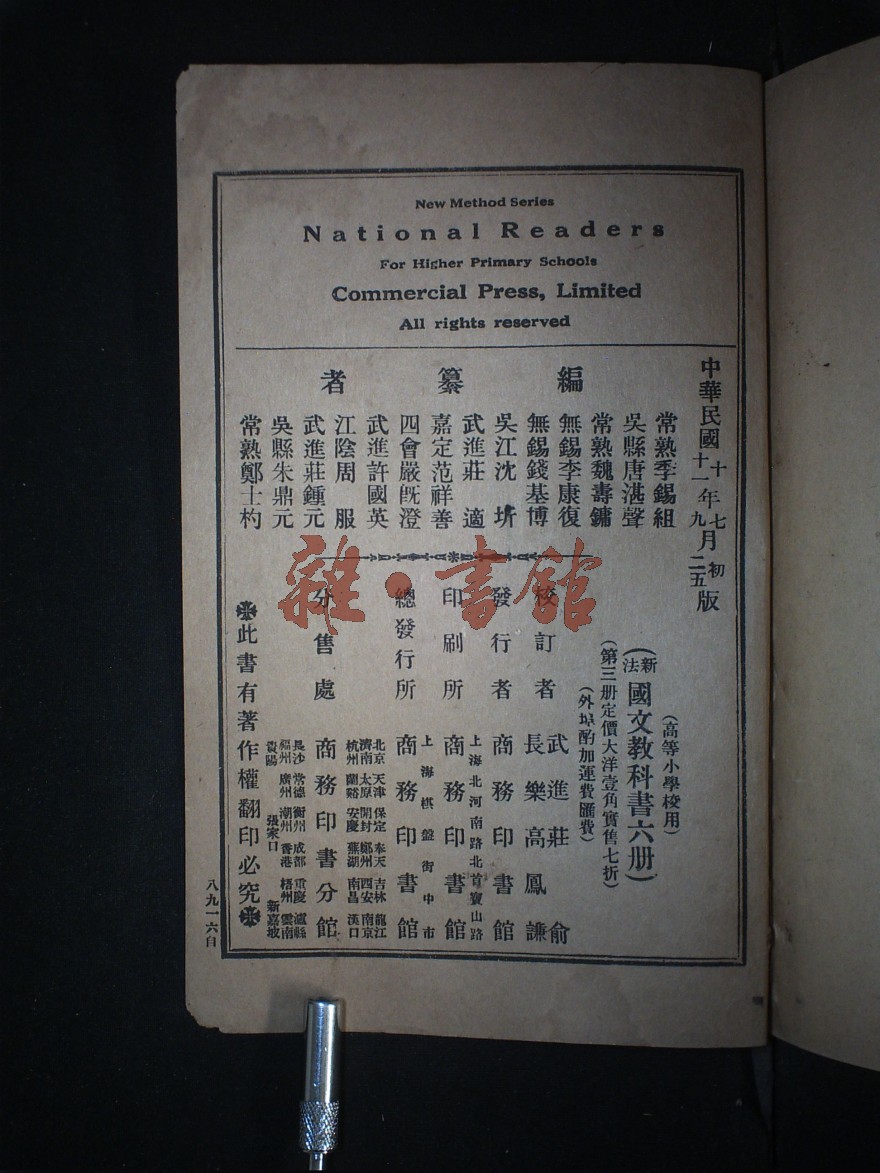 New Method Series
National Readers
For Higher Primary Schools
Commercial Press, Limited
All rights reserved
中華民國
十年七月初版
十一年九月二五版
編纂者
常熟季錫組
吳縣唐湛聲
常熟魏壽鏞
無錫李康復
無錫錢基博
吳江沈圻
武進莊適
嘉定范祥善
四會嚴旣澄
武進許國英
江陰周服
武進莊鍾元
吳縣朱鼎元
常熟鄭士杓
(高等小學校用)
(新法國文教科書六册)
(第三册定價大洋壹角實售七折)
(外埠酌加運費匯費)
校訂者
武進莊俞
長樂高鳳謙
發行者 商務印書館
上海北河南路北首寶山路
印刷所 商務印書館
上海棋盤街中市
總發行所 商務印書館
分售處 商務印書分館
北京 天津 保定 奉天 吉林 龍江
濟南 太原 開封 鄭州 西安 南京
杭州 蘭谿 安慶 蕪湖 南昌 漢口
長沙 常德 衡州 成都 重慶 瀘縣
福州 廣州 潮州 香港 梧州 雲南
貴陽 張家口 新嘉坡
此書有著作權翻印必究
八九一六自
雜·書館